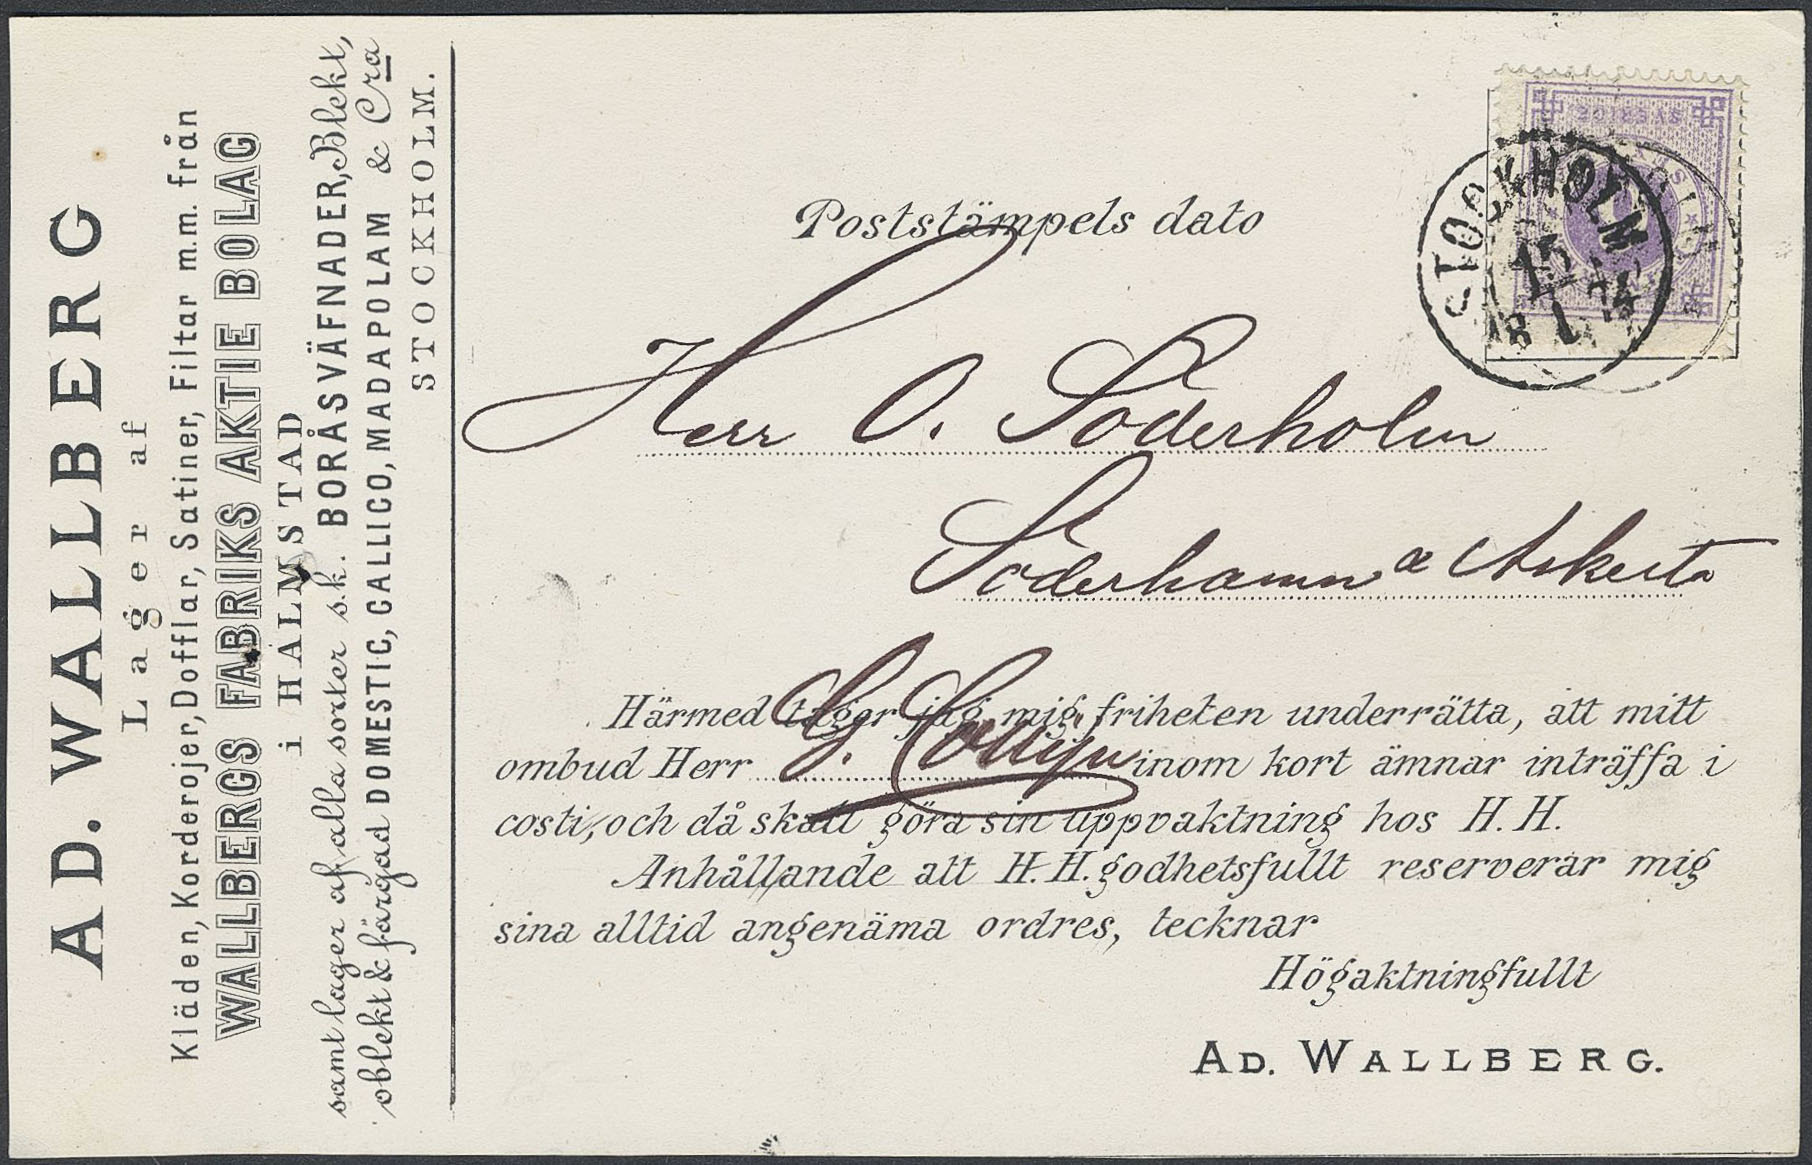 AD. WALLBERG
Lager af
Kläden, Korderojer, Dofflar, Satiner, Filtar m.m. från
WALLBERGS FABRIKS AKTIE BOLAG
i HALMSTAD
samt lager af alla sorter s.k. BORÅSVÄFNADER, Blekt,
oblekt & färgad DOMESTIC, CALLICO, MADAPOLAM & Cra
STOCKHOLM.
SVERIGE
STOCKHOLM
15
1
Poststämpels dato
Herr O. Söderholm
Söderhamn a
Härmed tager jag mig friheten underrätta, att mitt
ombud Herr G. inom kort ämnar inträffa i
costi, och då skall göra sin uppvaktning hos H. H.
Anhållande att H. H. godhetsfullt reserverar mig
sina alltid angenäma ordres, tecknar
Högaktningfullt
AD. WALLBERG.